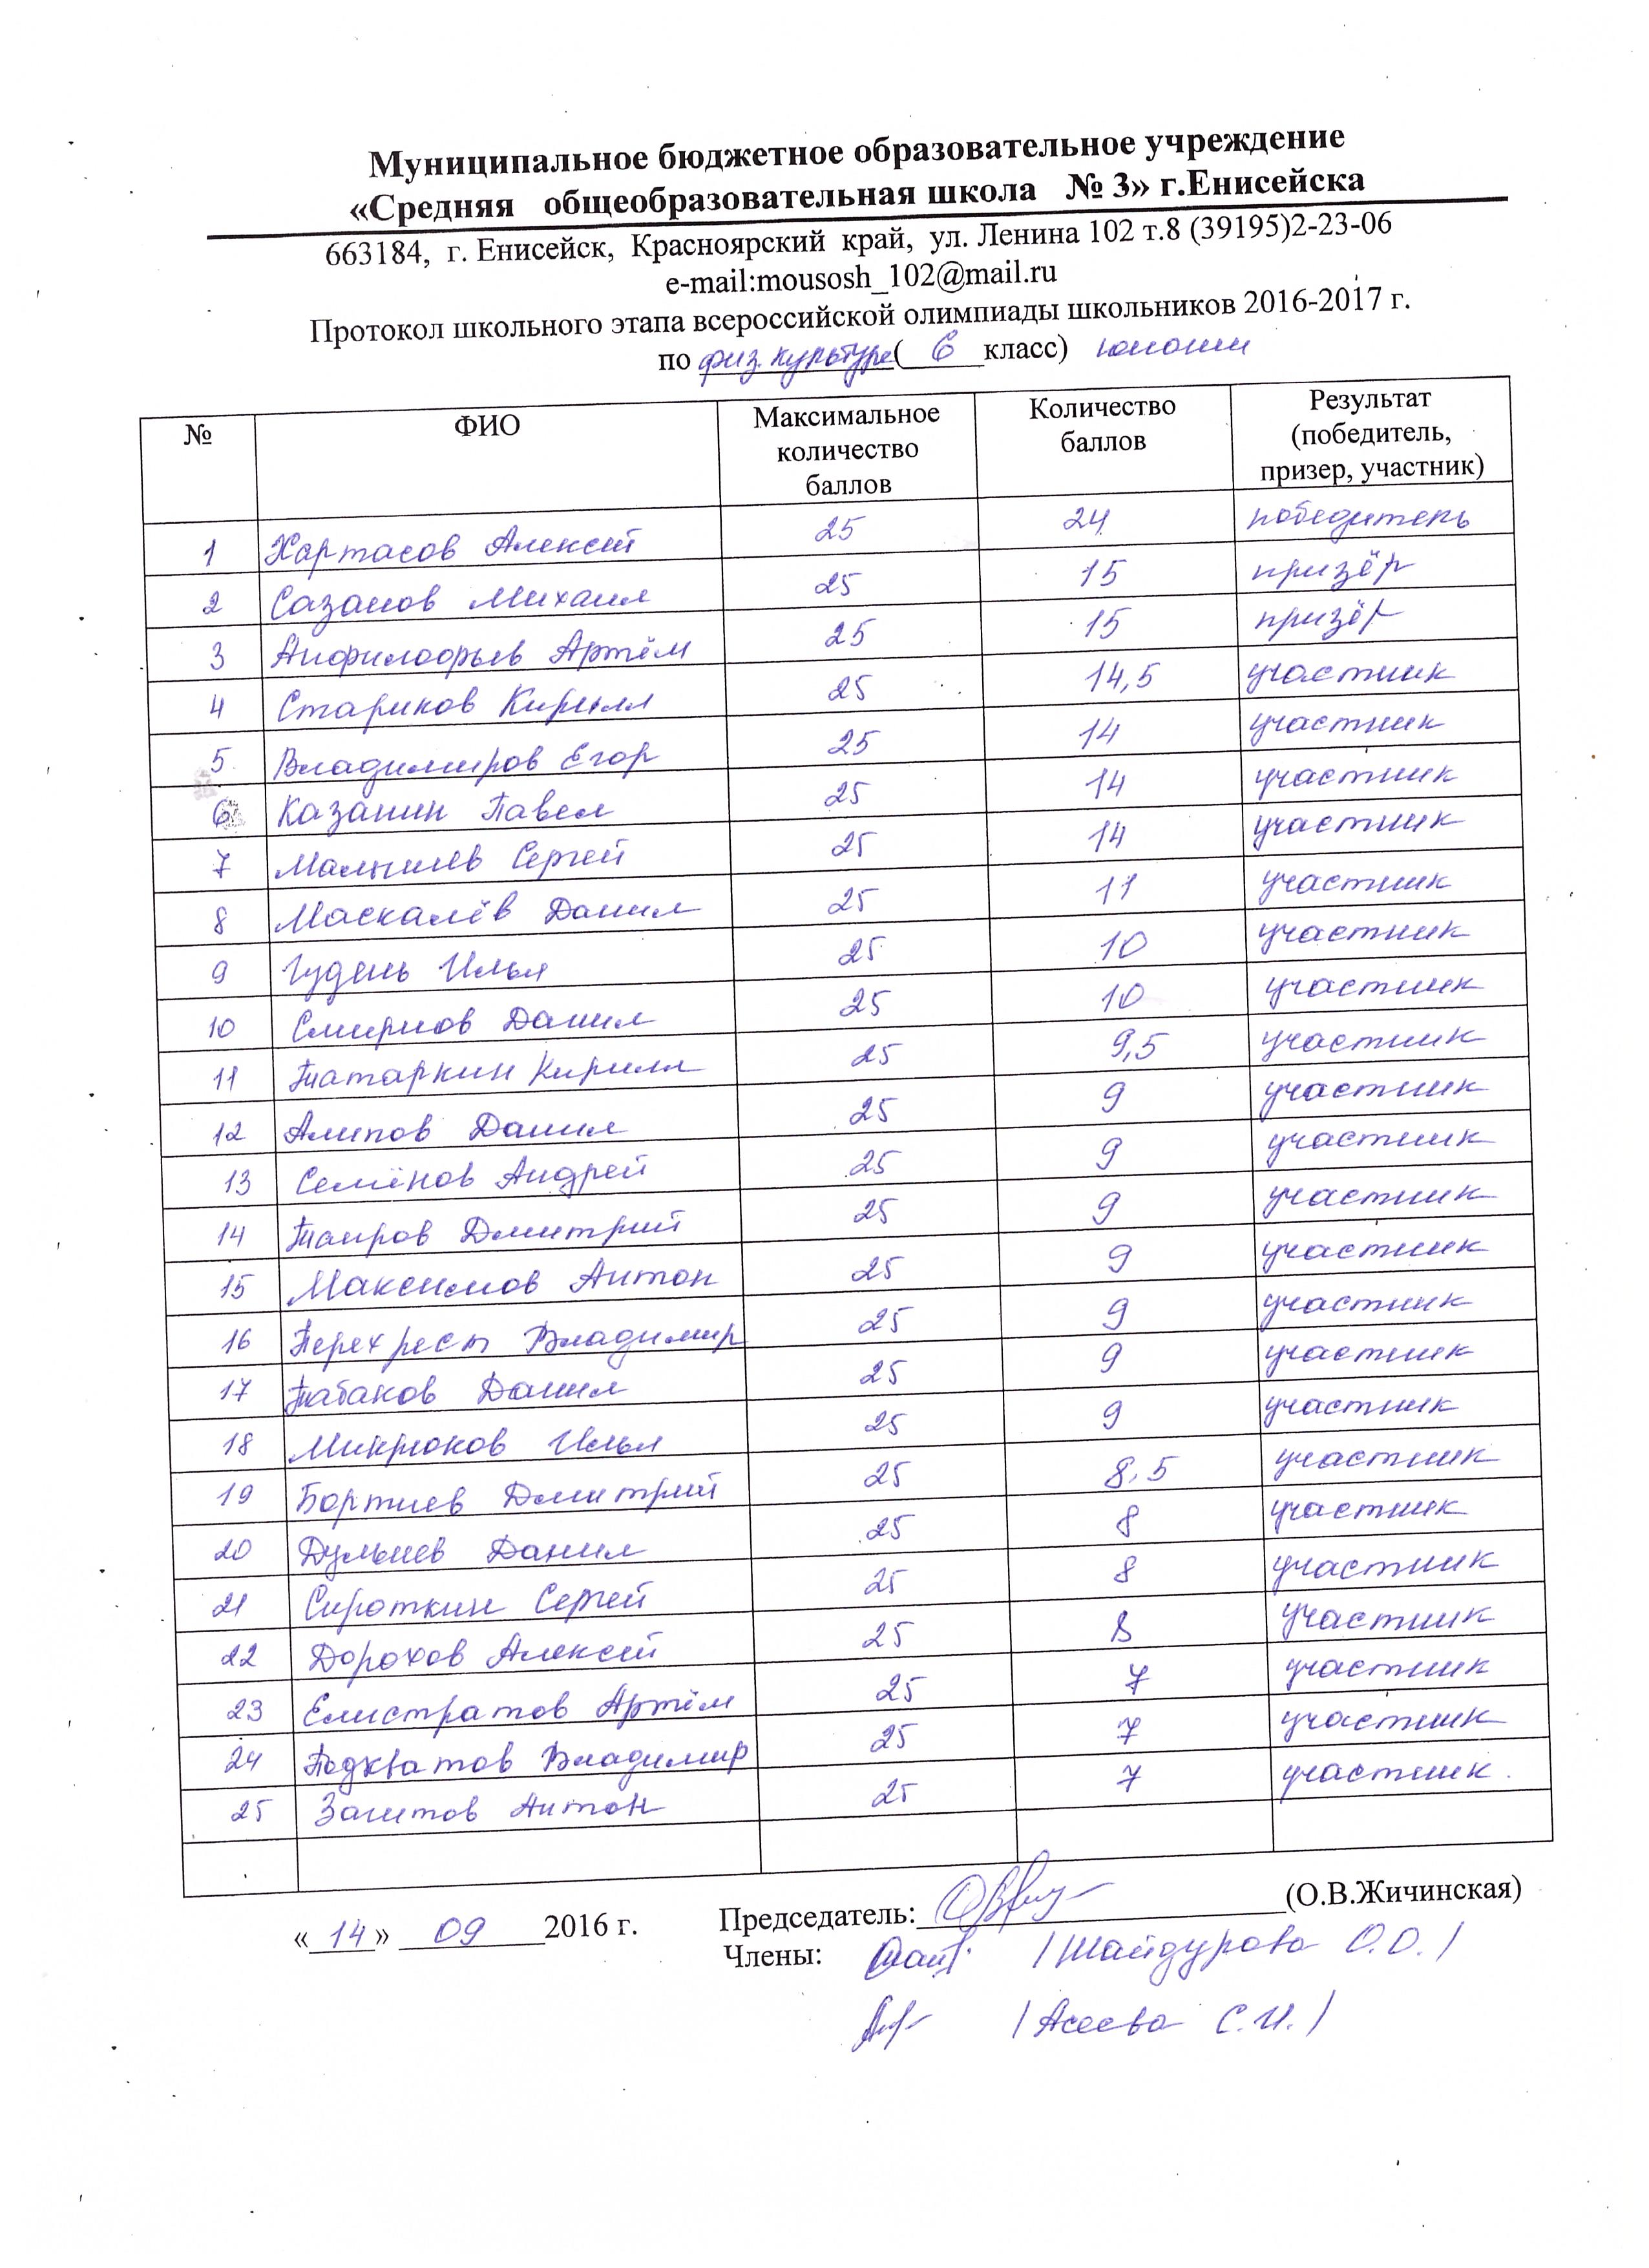 Муниципальное бюджетное образовательное учреждение
«Средняя общеобразовательная школа № 3» г.Енисейска
663184, г. Енисейск, Красноярский край, ул. Ленина 102 т.8 (39195)2-23-06
e-mail:mousosh_102@mail.ru
Протокол школьного этапа всероссийской олимпиады школьников 2016-2017 г.
по физ. культуре ( 6 класс) юноши
№ ФИО Максимальное количество баллов Количество баллов Результат (победитель, призер, участник)
1 Хартасов Алексей 25 24 победитель
2 Сазанов Михаил 25 15 призёр
3 Анфилофьев Артём 25 15 призёр
4 Стариков Кирилл 25 14,5 участник
5 Владимиров Егор 25 14 участник
6 Казанин Павел 25 14 участник
7 Малышев Сергей 25 14 участник
8 Маскалёв Данил 25 11 участник
9 Гудень Илья 25 10 участник
10 Смирнов Данил 25 10 участник
11 Татаркин Кирилл 25 9,5 участник
12 Алипов Данил 25 9 участник
13 Семёнов Андрей 25 9 участник
14 Таиров Дмитрий 25 9 участник
15 Максимов Антон 25 9 участник
16 Перехрест Владимир 25 9 участник
17 Табаков Данил 25 9 участник
18 Микрюков Илья 25 9 участник
19 Бортнев Дмитрий 25 8,5 участник
20 Дульнев Данил 25 8 участник
21 Сироткин Сергей 25 8 участник
22 Дорохов Алексей 25 8 участник
23 Елистратов Артём 25 7 участник
24 Подкватов Владимир 25 7 участник
25 Загитов Антон 25 7 участник.
« 14 » 09 2016 г. Председатель: (О.В.Жичинская)
Члены: /Шайдурова О.О./
/Асеева С.И./